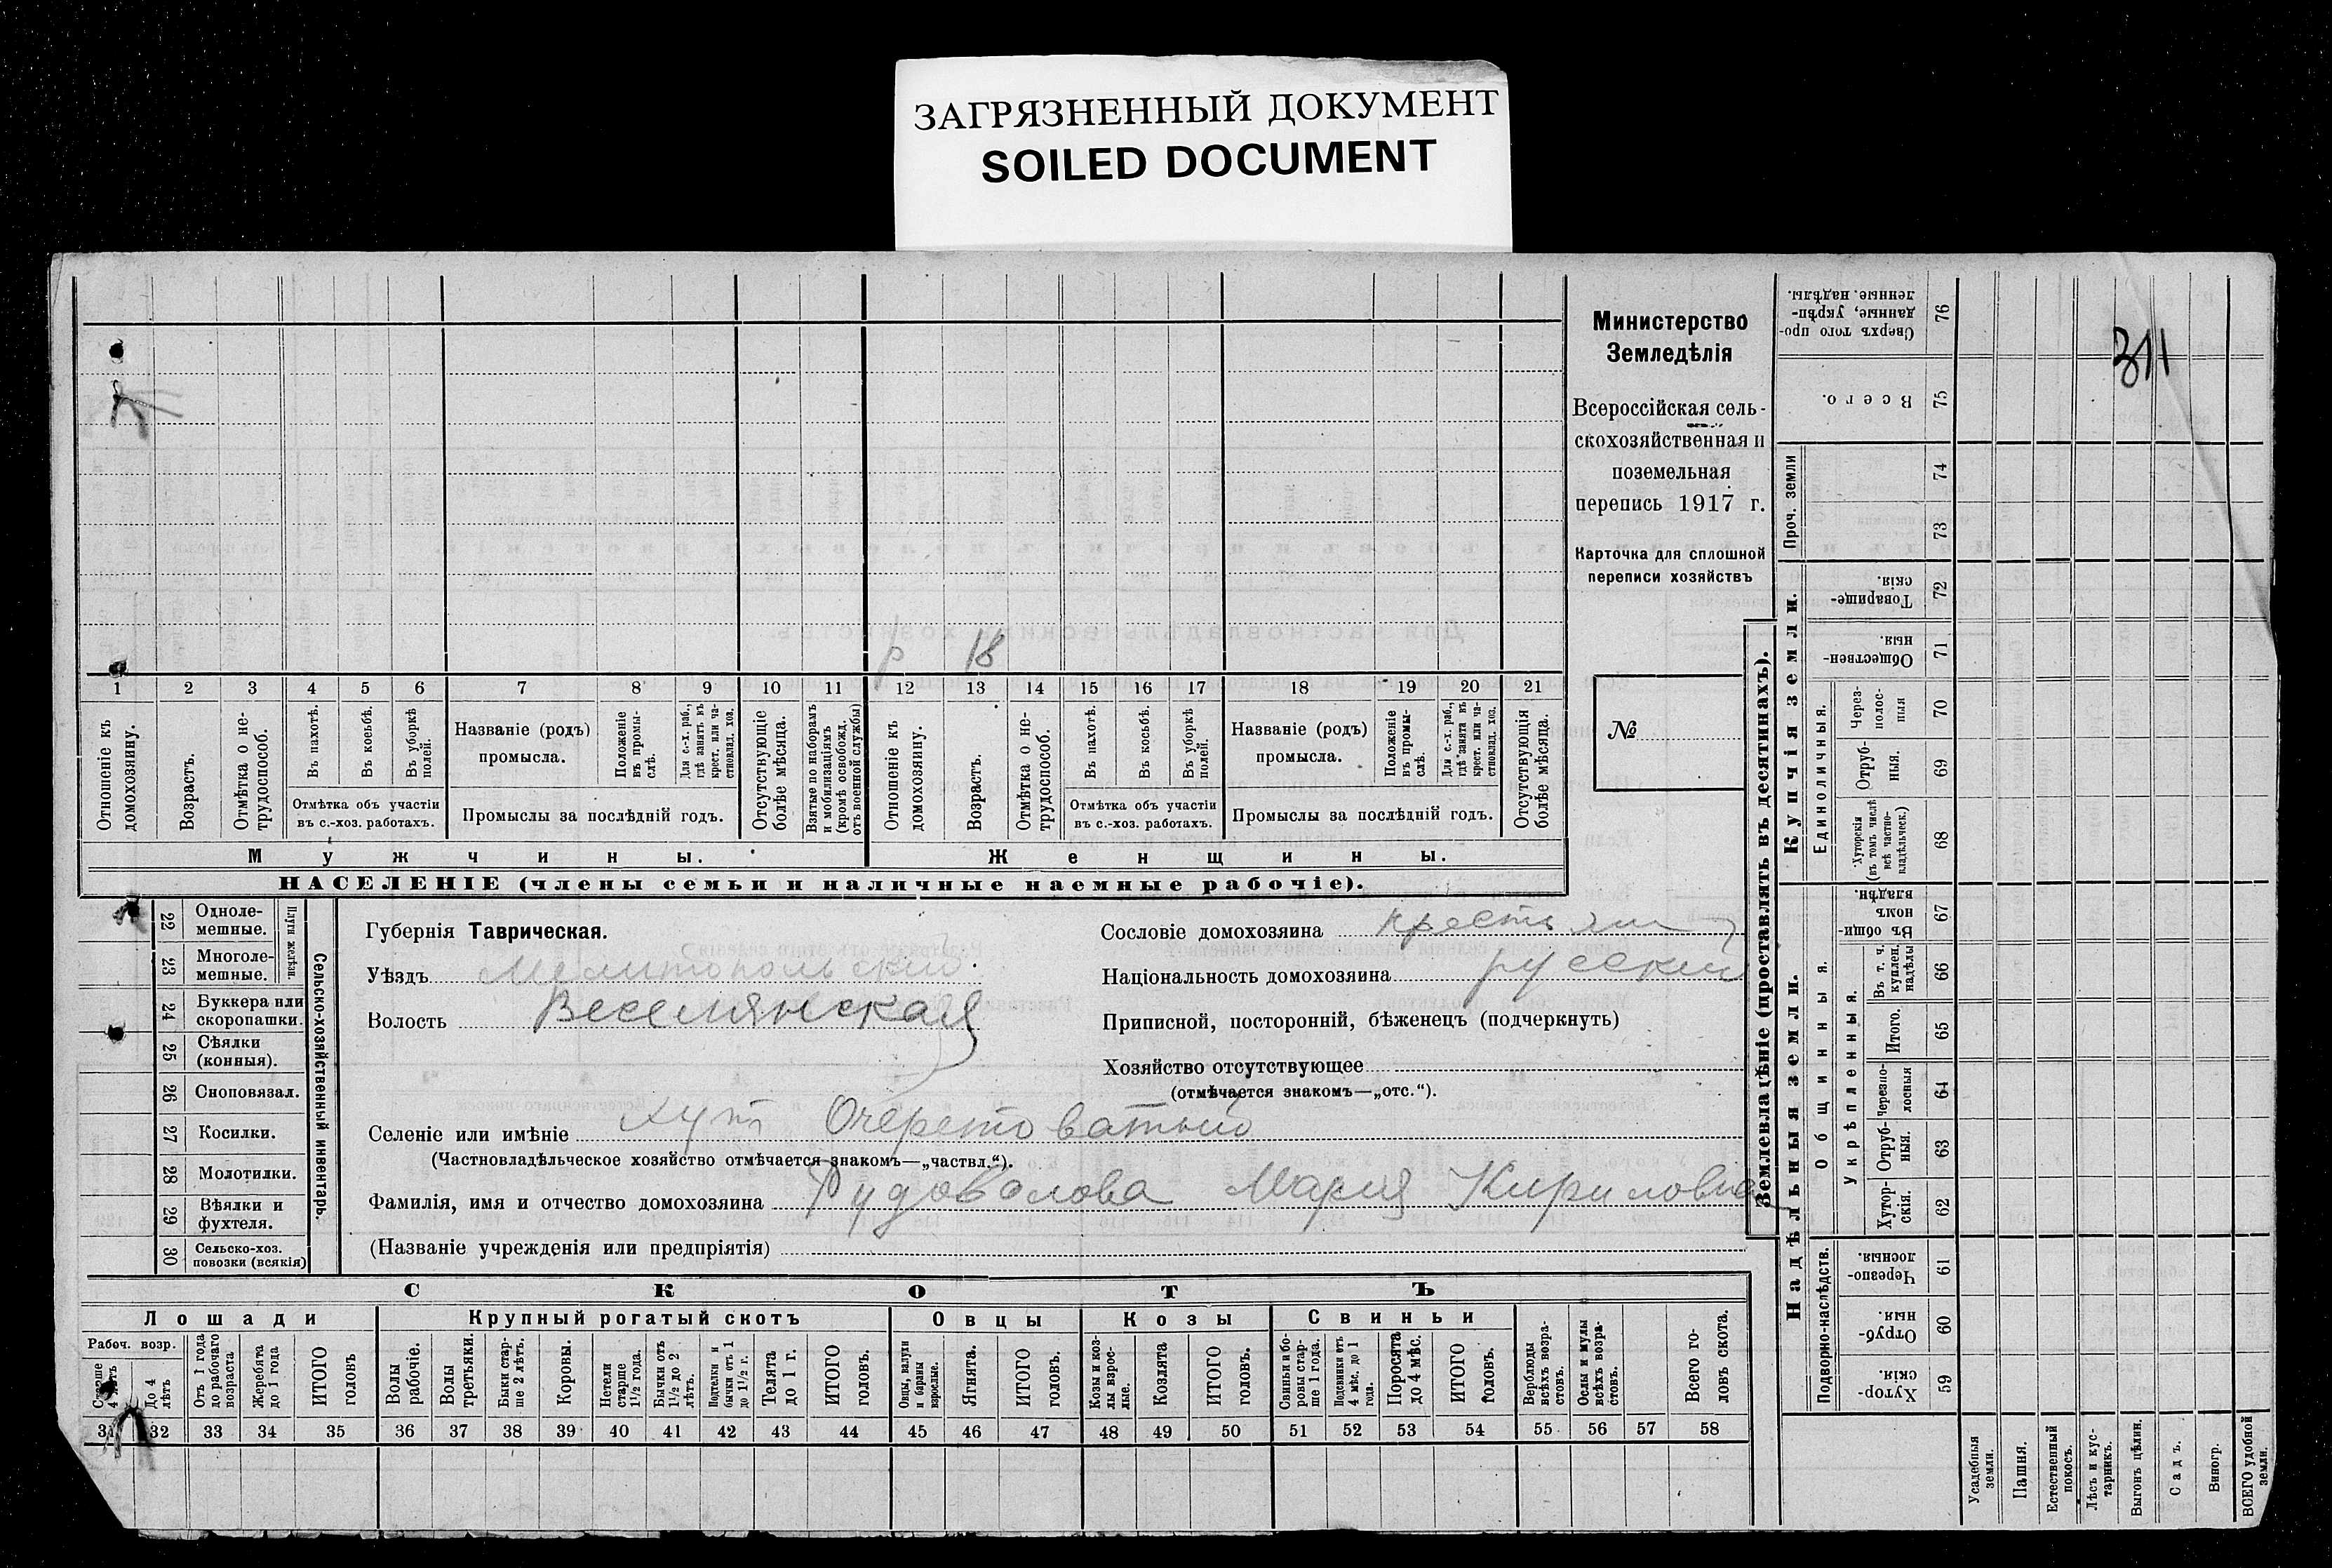 ЗАГРЯЗНЕННЫЙ ДОКУМЕНТ
SOILED DOCUMENT
311
Министерство
Земледѣлія
Всероссійская сель-
скохозяйственная и
поземельная
перепись 1917 г.
Карточка для сплошной
переписи хозяйствъ
№
р 18
1 2 3 4 5 6 7 8 9 10 11 12 13 14 15 16 17 18 19 20 21
Отношеніе къ домохозяину.
Возрастъ.
Отмѣтка о не-трудоспособ.
Въ пахотѣ.
Въ косьбѣ.
Въ уборкѣ полей.
Отмѣтка объ участіи
въ с.-хоз. работахъ.
Названіе (родъ)
промысла.
Положеніе въ промы-слѣ.
Для с.-х. раб., гдѣ занятъ въ крест. или ча-стновлад. хоз.
Промыслы за послѣдній годъ.
Отсутствующіе болѣе мѣсяца.
Взятые по наборамъ и мобилизаціямъ (кромѣ освобожд. отъ военной службы)
Отношеніе къ домохозяину.
Возрастъ.
Отмѣтка о не-трудоспособ.
Въ пахотѣ.
Въ косьбѣ.
Въ уборкѣ полей.
Отмѣтка объ участіи
въ с.-хоз. работахъ.
Названіе (родъ)
промысла.
Положеніе въ промы-слѣ.
Для с.-х. раб., гдѣ занята въ крест. или ча-стновлад. хоз.
Промыслы за послѣдній годъ.
Отсутствующія болѣе мѣсяца.
Мужчины.
Женщины.
НАСЕЛЕНІЕ (члены семьи и наличные наемные рабочіе).
22 Однолемешные.
23 Многолемешные.
Плуги желѣзн.
24 Буккера или скоропашки.
25 Сѣялки (конныя).
26 Сноповязал.
27 Косилки.
28 Молотилки.
29 Вѣялки и фухтеля.
30 Сельско-хоз. повозки (всякія)
Сельско-хозяйственный инвентарь.
Губернія Таврическая.
Уѣздъ Мелитопольский
Волость Веселянская
Сословіе домохозяина крестьян
Національность домохозяина русский
Приписной, посторонній, бѣженецъ (подчеркнуть)
Хозяйство отсутствующее
(отмѣчается знакомъ—„отс.“).
Селеніе или имѣніе хут Очеретоватый
(Частновладѣльческое хозяйство отмѣчается знакомъ—„частвл.“).
Фамилія, имя и отчество домохозяина Рудовалова Мария Кириловна
(Названіе учрежденія или предпріятія)
СКОТЪ
Лошади
Крупный рогатый скотъ
Овцы
Козы
Свиньи
Рабоч. возр.
Старше 4 лѣтъ
До 4 лѣтъ
Отъ 1 года до рабочаго возраста
Жеребята до 1 года
ИТОГО головъ
Волы рабочіе.
Волы третьяки.
Быки стар-ше 2 лѣтъ.
Коровы.
Нетели старше 1½ года.
Бычки отъ 1½ до 2 лѣтъ.
Подтелки и бычки отъ 1 до 1½ г.
Телята до 1 г.
ИТОГО головъ.
Овцы, валухи и бараны взрослые.
Ягнята.
ИТОГО головъ.
Козы и коз-лы взрос-лые.
Козлята
ИТОГО головъ.
Свиньи и бо-ровы стар-ше 1 года.
Подсвинки отъ 4 мѣс. до 1 года.
Поросята до 4 мѣс.
ИТОГО головъ.
Верблюды всѣхъ возра-стовъ.
Ослы и мулы всѣхъ возра-стовъ.
Всего го-ловъ скота.
31 32 33 34 35 36 37 38 39 40 41 42 43 44 45 46 47 48 49 50 51 52 53 54 55 56 57 58
Землевладѣніе (проставлять въ десятинахъ).
Надѣльныя земли.
Купчія земли.
Проч. земли
Подворно-наслѣдств.
Общинныя.
Укрѣпленныя.
Единоличныя.
Хутор-скія. 59
Отруб-ныя. 60
Черезпо-лосныя. 61
Хутор-скія. 62
Отруб-ныя. 63
Черезпо-лосныя 64
Итого. 65
Въ т. ч. куплен. надѣлы 66
Въ общи-номъ владѣн. 67
Хуторскія (въ томъ числѣ всѣ частно-владѣльческ.) 68
Отруб-ныя. 69
Через-полос-ныя 70
Обществен-ныя. 71
Товарище-скія. 72
73
74
Всего. 75
Сверхъ того про-данные, укрѣп-ленные. надѣлы. 76
Усадебныя земли.
Пашня.
Естественный покосъ.
Лѣсъ и кус-тарникъ.
Выгонъ цѣлин.
Садъ.
Виногр.
ВСЕГО удобной земли.